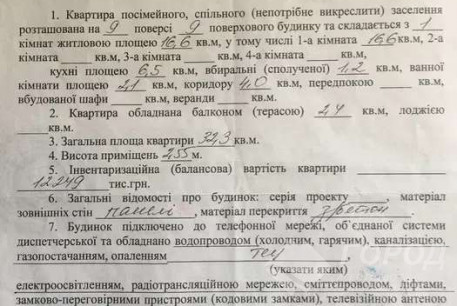 1. Квартира посімейного, спільного (непотрібне викреслити) заселення
розташована на 9 поверсі 9 поверхового будинку та складається з 1
кімнат житловою площею 16,6 кв.м, у тому числі 1-а кімната 16,6 кв.м, 2-а
кімната ____ кв.м, 3-а кімната ____ кв.м, 4-а кімната ____ кв.м,
кухні площею 6,5 кв.м, вбиральні (сполученої) 1,2 кв.м, ванної
кімнати площею 2,1 кв.м, коридору 4,0 кв.м, передпокою ____ кв.м,
вбудованої шафи ____ кв.м, веранди ____ кв.м.
2. Квартира обладнана балконом (терасою) 2,4 кв.м, лоджією
____ кв.м.
3. Загальна площа квартири 32,3 кв.м.
4. Висота приміщень 2,55 м.
5. Інвентаризаційна (балансова) вартість квартири ____
12249 тис.грн.
6. Загальні відомості про будинок: серія проекту ____, матеріал
зовнішніх стін панелі, матеріал перекриття
7. Будинок підключено до телефонної мережі, об'єднаної системи
диспетчерської та обладнано водопроводом (холодним, гарячим), каналізацією,
газопостачанням, опаленням
(указати яким)
електроосвітленням, радіотрансляційною мережею, сміттєпроводом, ліфтами,
замково-переговорними пристроями (кодовими замками), телевізійною антеною